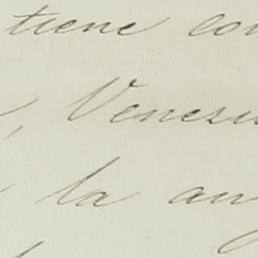 tiene con
, Venezu
la au